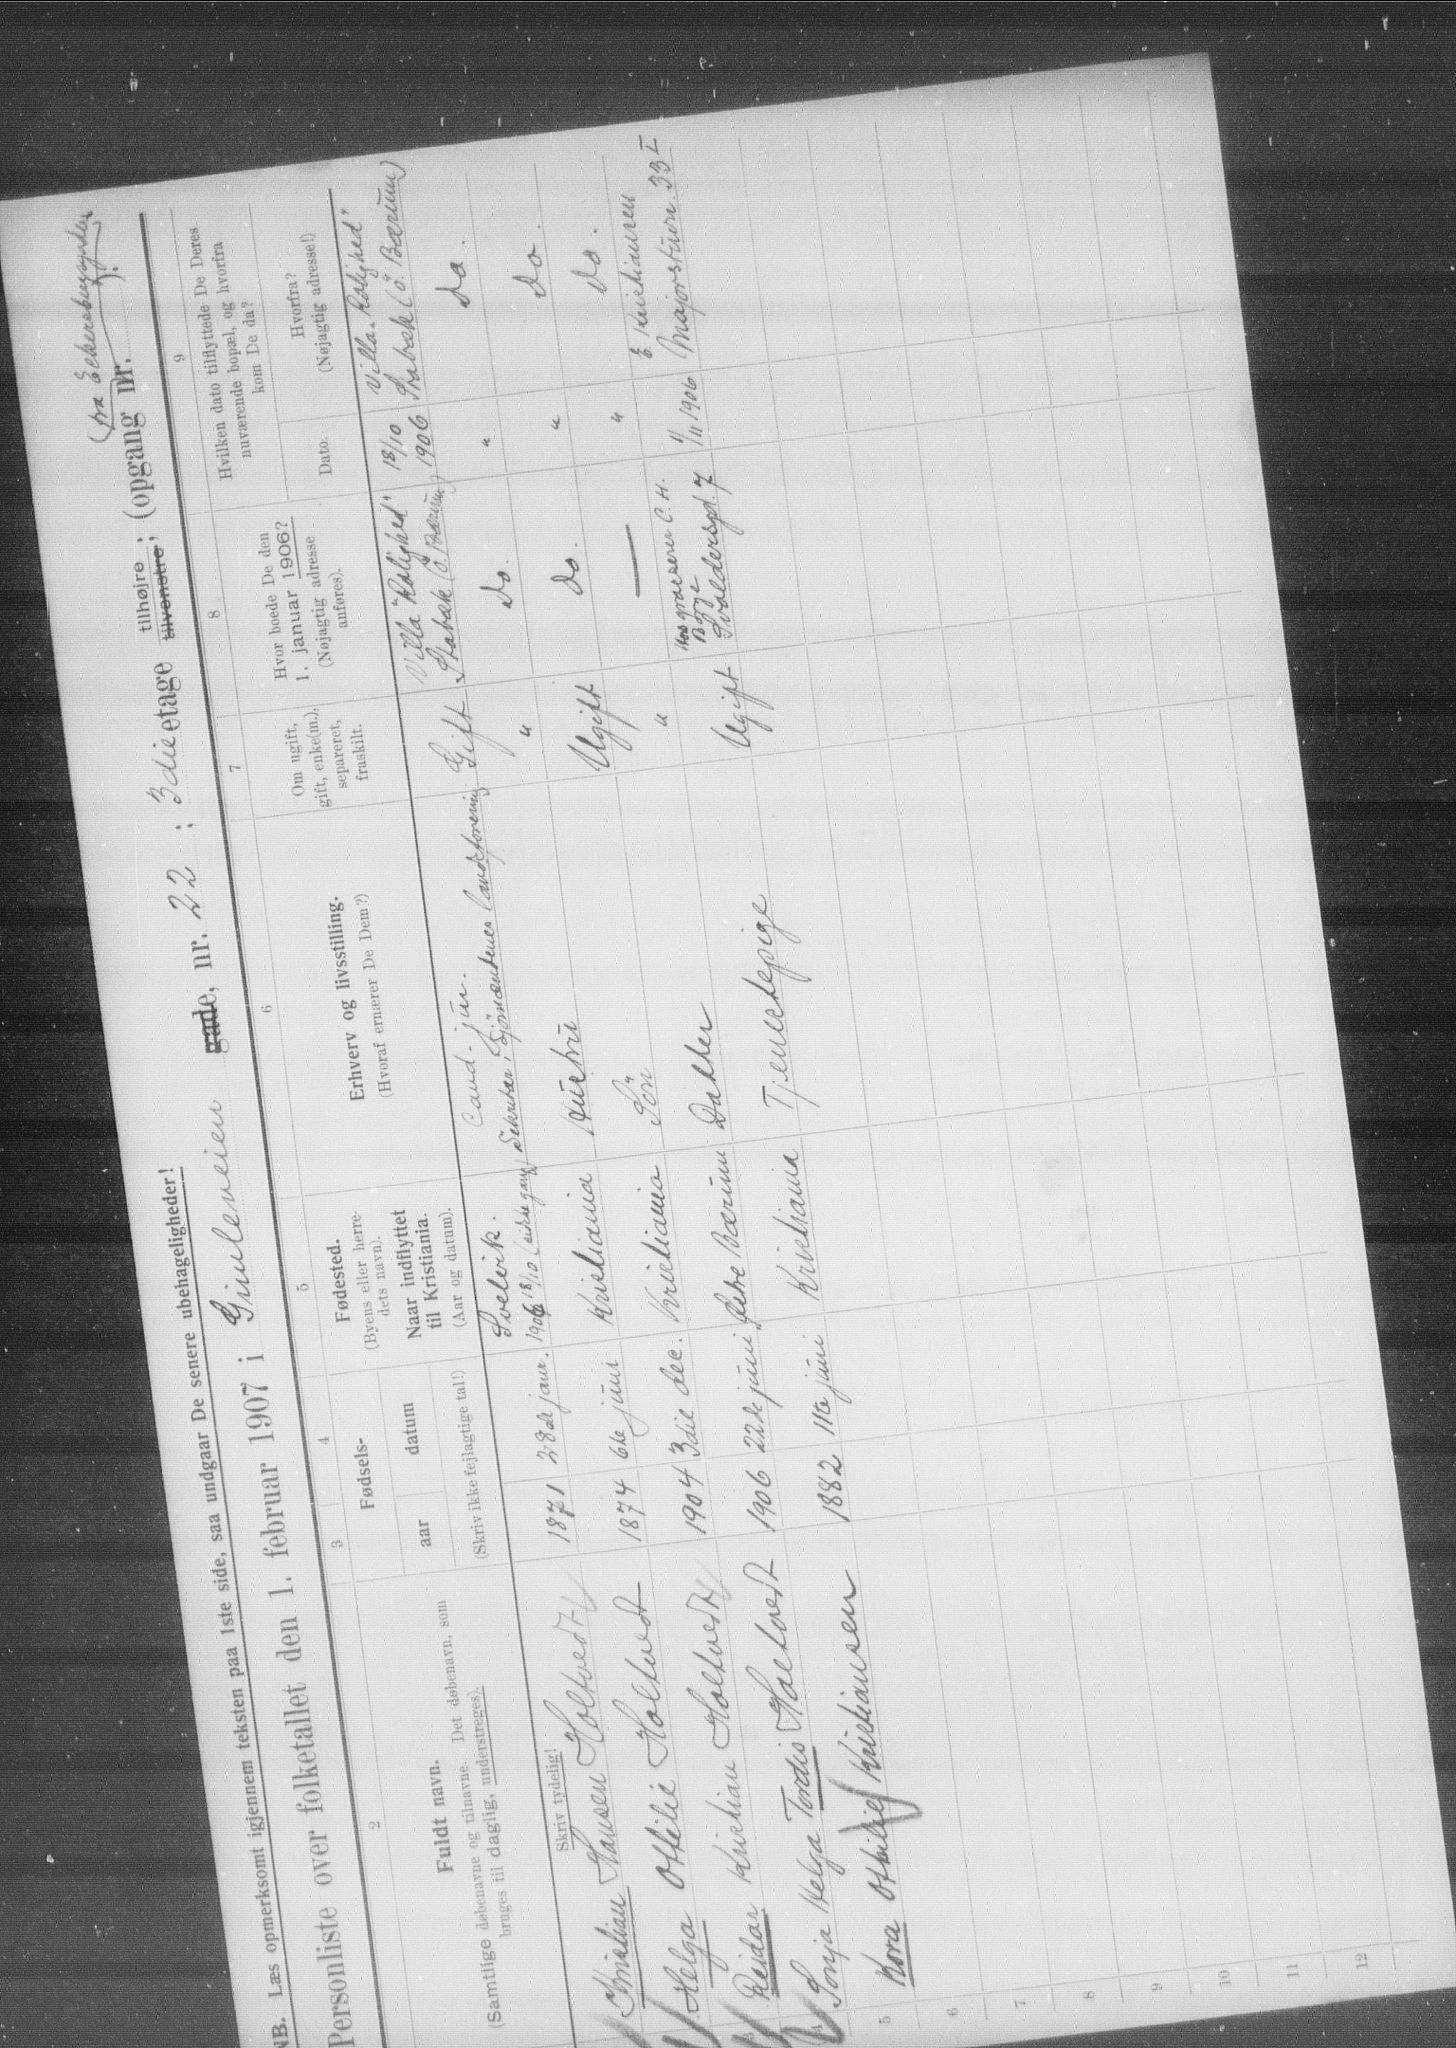 NB. Læs opmerksomt igjennem teksten paa 1ste side, saa undgaar De senere ubehageligheder!
(fra Eckersbergsgaden).
Personliste over folketallet den 1. februar 1907 i Gimleveien gade, nr. 22 ; 3die etage tilhøjre ; tilvenstre ; (opgang nr.
2
3
4
5
6
7
8
9
Fuldt navn.
(Samtlige døbenavne og tilnavne. Det døbenavn, som
bruges til daglig, understreges).
Skriv tydelig!
Fødsels-
aar
datum
(Skriv ikke fejlagtige tal!)
Fødested.
(Byens eller herre-
dets navn).
Naar indflyttet
til Kristiania.
(Aar og datum).
Erhverv og livsstilling.
(Hvoraf ernærer De Dem?)
Om ugift,
gift, enke(m.),
separeret,
fraskilt.
Hvor boede De den
1. januar 1906?
(Nøjagtig adresse
anføres).
Hvilken dato tilflyttede De Deres
nuværende bopæl, og hvorfra
kom De da?
Dato.
Hvorfra?
(Nøjagtig adresse!)
Kristian Hansen Holtvedt 1871 28de janr. Svelvik. 1906 18/10 Cand. jur. Sekretær i Sjømændenes Landsforening Gift Villa "Rolighed" Stabæk (Ø. Bærum) 18/10 1906 Villa "Rolighed" Stabæk (Ø. Bærum)
Helga Ottilie Holtvedt 1874 6te juni Kristiania Hustru " Do. " Do.
3 Reidar Kristian Holtvedt 1904 3die dec. Kristiania Søn Ugift Do. " Do.
4 Sonja Helga Tordis Holtvedt 1906 22de juni Østre Bærum Datter " — " Do.
5 Kora Othilie Kristiansen 1882 11te juni Kristiania Tjenestepige Ugift Hos grosserer C. H. Bogge Svoldersgd. 7 1/11 1906 E Kristiansen Majorstuen 33 I
6
7
8
9
10
11
12